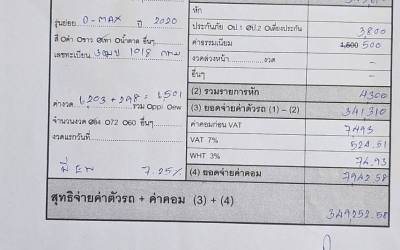 รุ่นย่อย D-MAX ปี 2020
หัก
ประกันภัย ป.1 ป.2 เบี้ยงประกัน 3,800
สี ดำ ขาว เทา น้ำตาล อื่นๆ
ค่าธรรมเนียม 1,500 500
เลขทะเบียน 1018 กทม
งวดล่วงหน้า งวด -
อื่นๆ
(2) รวมรายการหัก 4300
ค่างวด 6,203 + 298 = 6,501
รวม ppi ew
(3) ยอดจ่ายค่าตัวรถ (1) – (2) 341,310
จำนวนงวด 84 72 60 อื่นๆ
ค่าคอมก่อน VAT 7493
งวดแรกวันที่
VAT 7% 524.51
WHT 3% 74.93
7.25%
(4) ยอดจ่ายค่าคอม 7942.58
สุทธิจ่ายค่าตัวรถ + ค่าคอม (3) + (4) 349,252.58